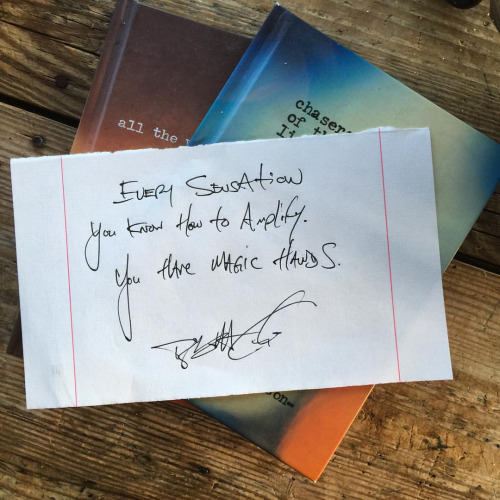 all the
chasers
of th
li
EVERY SENSATION
You KNOW HOW to Amplify.
You HAVE MAGIC HANDS.
son—